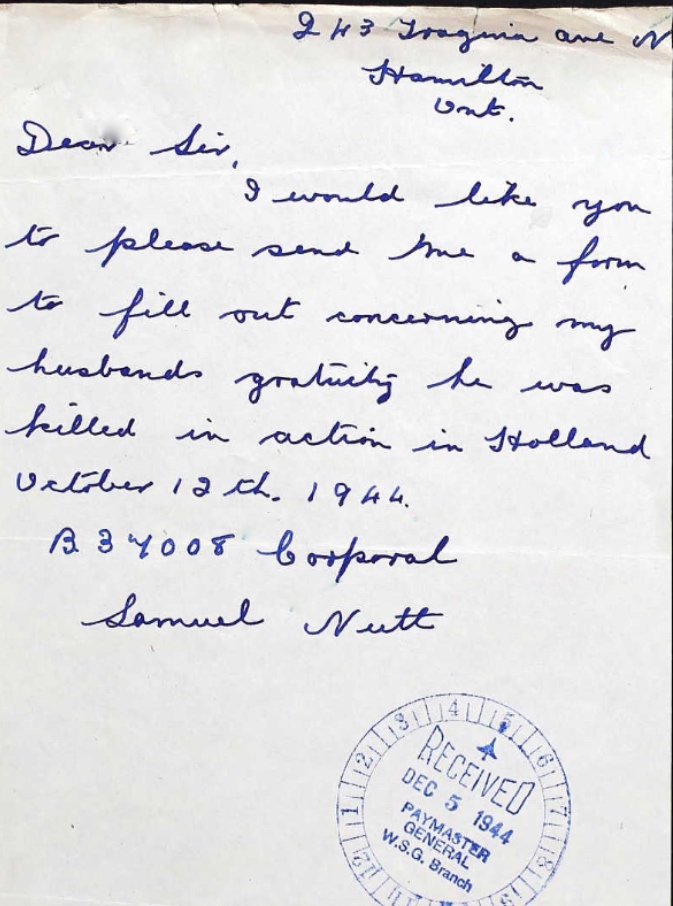 243 Tragina ave N
Hamilton
Ont.
Dear Sir,
I would like you
to please send me a form
to fill out concerning my
husbands gratuity he was
killed in action in Holland
October 12th. 1944.
B 37008 Corporal
Samuel Nutt
1 2 3 4 5 6 7 8
RECEIVED
DEC 5 1944
PAYMASTER
GENERAL
W.S.G. Branch
12 11